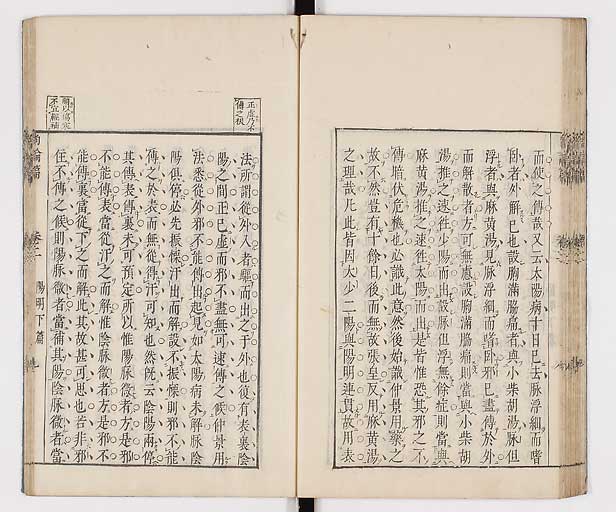 而使之傳哉又云太陽病十日已去脉浮細而嗜
臥者外解已也設胸滿脇痛者與小柴胡湯脉但
浮者與麻黄湯見脉浮細而嗜臥邪已盡得於外
而解散者方可無慮設胸滿脇痛則當與小柴胡
湯推之速徃少陽而出設脉但浮無餘症則當與
麻黄湯推之速徃太陽而出是皆惟恐其邪之不
傳暗伏危機也必識此意然後始識仲景用藥之
故不然豈有十餘日後而無故張皇反用麻黄湯
之理哉凡此皆因太少二陽與陽明連貫故用表
法所謂從外入者驅而出之于外也復有表裏陰
陽之間正已虛而邪不盡無可速傳之候仲景用
法悉從外邪不能傳出起見如太陽病未解脉陰
陽俱停必先振慄汗出而解設不振慄則邪不能
傳之於表而無從得汗可知也然既云陰陽兩停
其傳表傳裏未可預定所以惟陽脉微者方是邪
不能傳表當從汗之而解惟陰脉微者方是邪不
能傳裏當從下之而解此其故甚可思也若非邪
住不傳之候則陽脉微者當補其陽陰脉微者當
正虛乃不
傳之根
尚論篇
卷二
陽明下篇